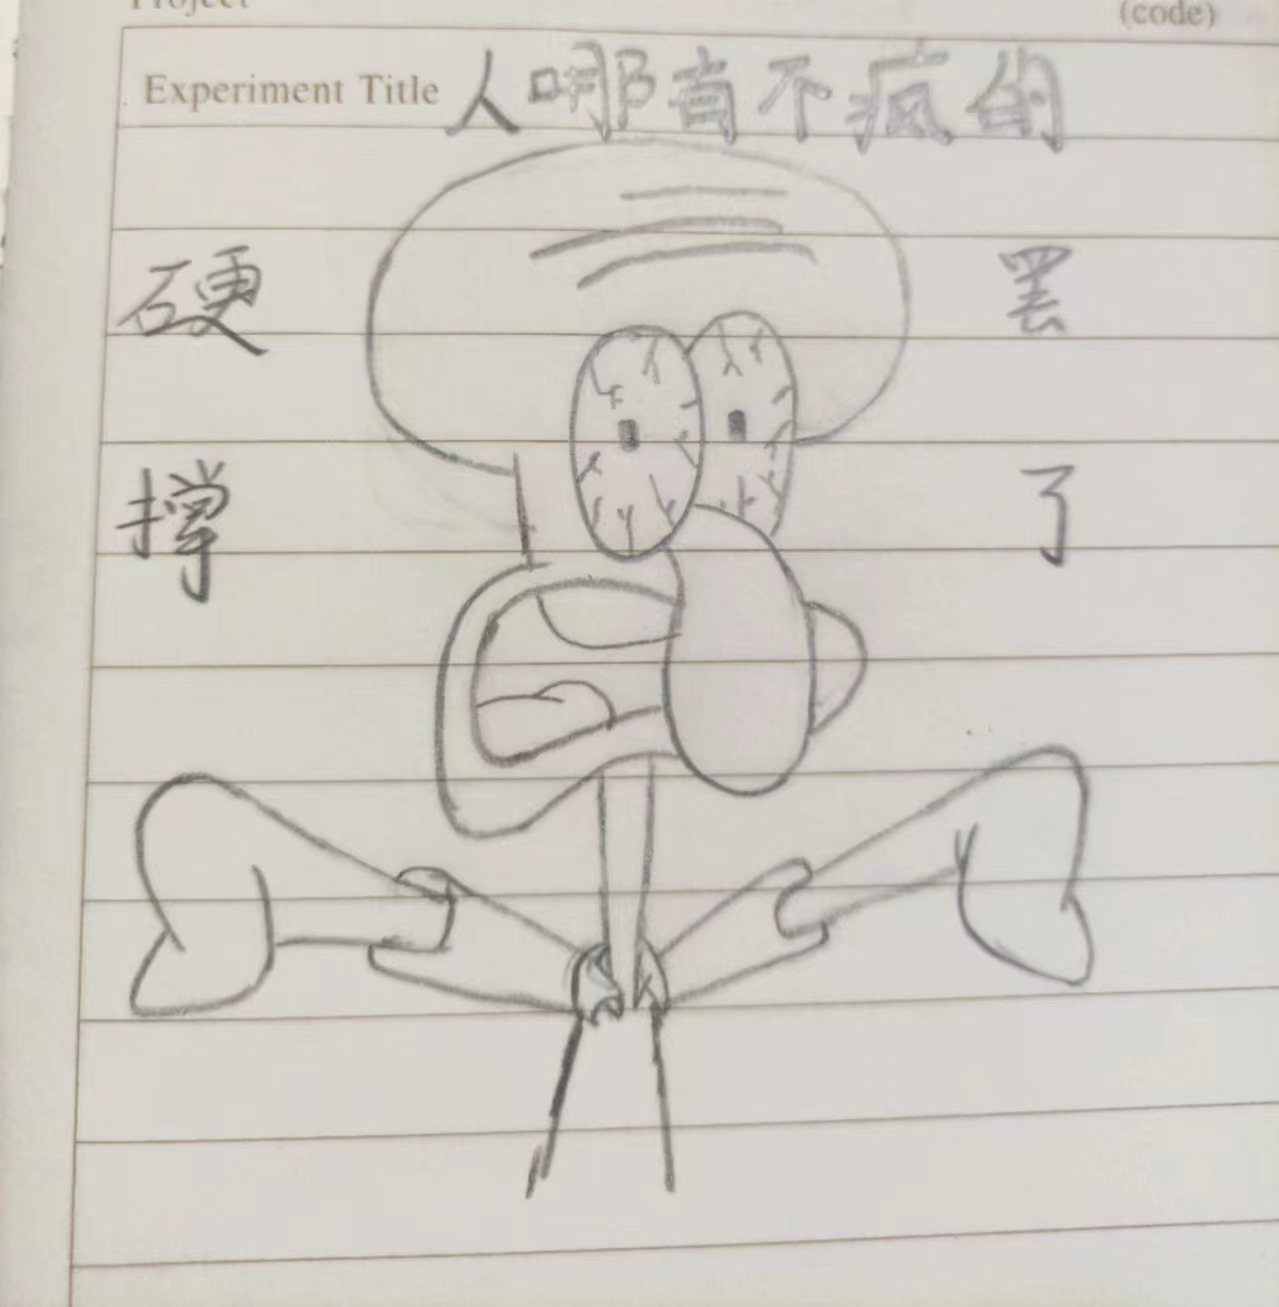 Project
(code)
Experiment Title 人哪有不疯的
硬撑
罢了